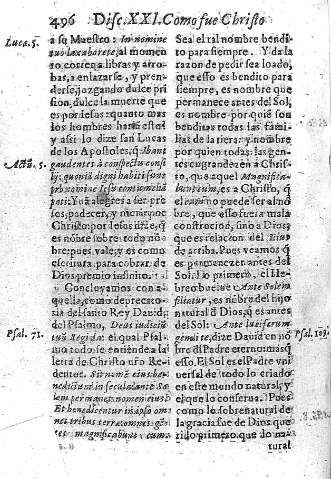 496 Disc. XXI. Como fue Christo
Luca. 5.
a su Maestro: In nomine
tuo laxabo rete, al momento
to corren a libras y arrobas,
a enlazarse, y prenderse,
juzgando dulce prision,
dulce la muerte que
es por Iesus: quanto mas
los hombres harán esto?
y assi lo dize san Lucas
de los Apostoles, q̃ Ibant
Actũ. 5.
gaudentes à conspectu consilij,
quoniã digni habiti sunt
pro nomine Iesu contumeliã
pati: Yuã alegres a ser presos,
padecer, y morir por
Christo: por Iesus
es nõbre sobre todo nõbre:
pues vale, y es como
escritura para cobrar de
Dios premio infinito.
Concluyamos con aquella,
como deprecatoria
del santo Rey Dauid,
del Psalmo, Deus iudiciũ
Psal. 71.
tuũ Regi da: el qual Psalmo
todo se entiende a la
letra de Christo nr̃o Redentor.
Sit nomẽ eius benedictum
in sæcula: ante Solem
permanet nomen eius:
Et benedicentur in ipso omnes
tribus terræ: omnes gentes
magnificabunt eum.
Sea el tal nombre bendito
para siempre. Y da la
razon de pedir sea loado,
que esso es bendito para
siempre, es nombre que
permanece antes del Sol,
es nombre por quiẽ son
benditas todas las familias
de la tierra: y nombre
por quien todas las gentes
engrandezen a Christo,
que aquel Magnificabunt
eum, es a Christo, q̃
el eum no puede ser al nõbre,
que esso fuera mala
construcion, sino a Dios
que es relacion del Eius
de arriba. Pues veamos q̃
es permanecer antes del
Sol? Lo primero, el Hebreo
buelue Ante Solem
filietur, es nõbre del hijo
natural d̃ Dios, q̃ es antes
del Sol: Ante luciferum
Psal. 109.
genui te, dize Dauid en nõbre
del Padre eterno: mas q̃
esso. El Sol es el Padre vniuersal
de todo lo criado
en este mundo natural, y
el que lo conserua. Pues
como lo sobrenatural de
la gracia fue de Dios querido
primero que lo natural
tural